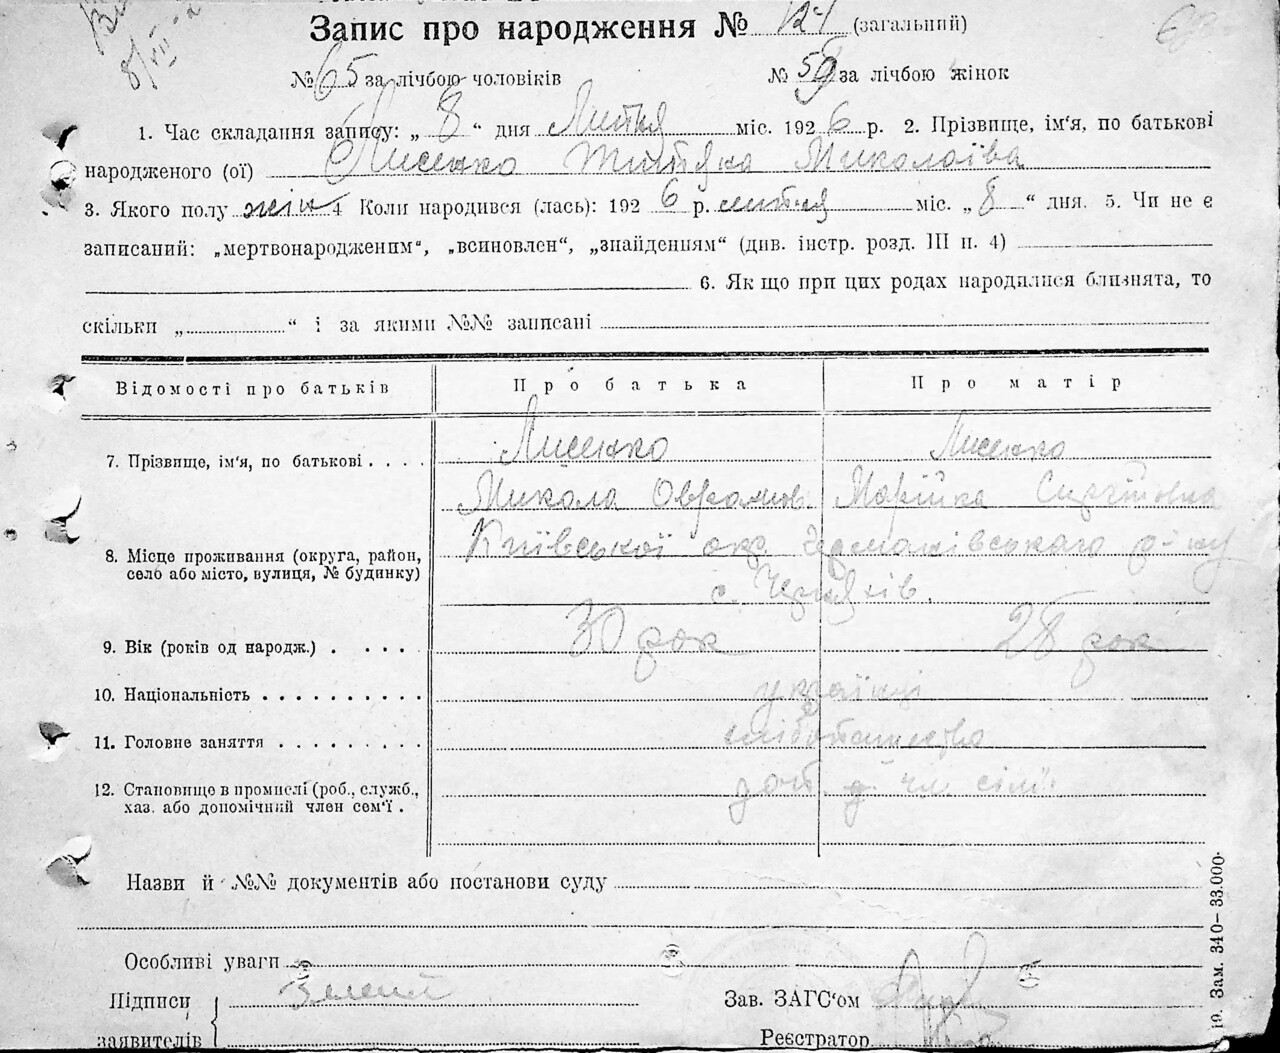 Запис про народження № 124 (загальний)
№ 65 за лічбою чоловіків № 59 за лічбою жінок
1. Час складання запису: „ 8 “ дня Липня міс. 1926 р. 2. Прізвище, ім'я, по батькові
народженого (ої) Лисенко Титяна Миколаївна
3. Якого полу жін 4 Коли народився (лась): 1926 р. липня міс. „ 8 “ дня. 5. Чи не є
записаний: „мертвонародженим“, „всиновлен“, „знайденням“ (див. інстр. розд. III п. 4)
6. Як що при цих родах народилися близнята, то
скільки „ “ і за якими №№ записані
Відомості про батьків Про батька Про матір
7. Прізвище, ім'я, по батькові Лисенко Лисенко
Микола Оврамов. Марійка Сергіївна
8. Місце проживання (округа, район, Київської окр. Германівського р-ну
село або місто, вулиця, № будинку) с. Черняхів.
9. Вік (років од народж.) 30 рок 28 рок
10. Національність українці
11. Головне заняття хліботашество
12. Становище в промислі (роб., служб.,
хаз. або допомічний член сем'ї . доп. чл сімї
Назви й №№ документів або постанови суду
Особливі уваги
Підписи Зелений Зав. ЗАГС'ом
заявителів Реєстратор
19. Зам. 340– 33.000.